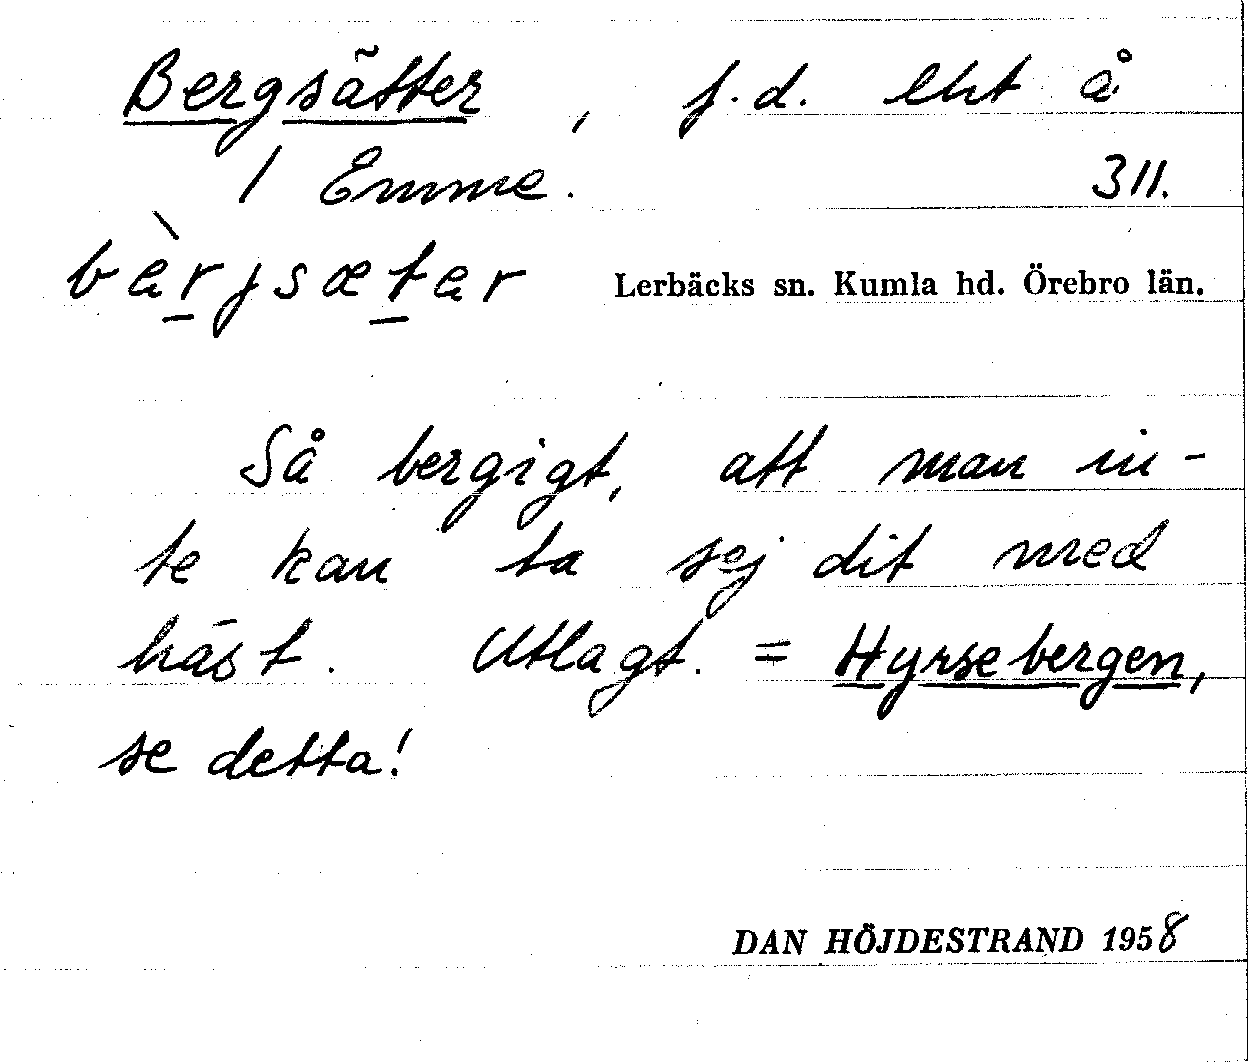 Bergsätter, f.d. lht å
1 Emme. 311.
bèrjsætar Lerbäcks sn. Kumla hd. Örebro län.
Så bergigt, att man in-
te kan ta sej dit med
häst. Utlagt. = Hyrsebergen,
se detta!
DAN HÖJDESTRAND 1958